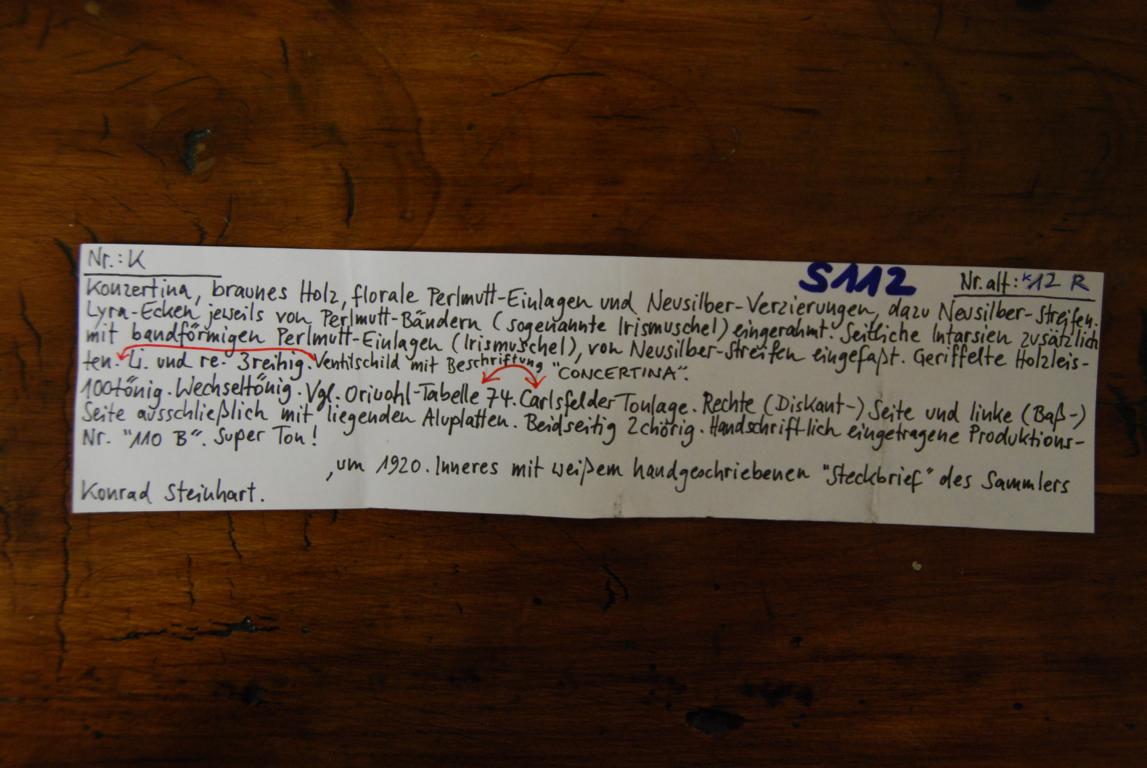 Nr.: K
S112
Nr. alt: K12 R
Konzertina, braunes Holz, florale Perlmutt-Einlagen und Neusilber-Verzierungen, dazu Neusilber-Streifen.
Lyra-Ecken jeweils von Perlmutt-Bändern (sogenannte Irismuschel) eingerahmt. Seitliche Intarsien zusätzlich
mit bandförmigen Perlmutt-Einlagen (Irismuschel), von Neusilber-Streifen eingefaßt. Geriffelte Holzleis-
ten. Li. und re. 3reihig. Ventilschild mit Beschriftung "CONCERTINA".
100tönig. Wechseltönig. Vgl. Oriwohl-Tabelle 74. Carlsfelder Tonlage. Rechte (Diskant-) Seite und linke (Baß-)
Seite ausschließlich mit liegenden Aluplatten. Beidseitig 2chörig. Handschriftlich eingetragene Produktions-
Nr. "110 B". Super Ton!
, um 1920. Inneres mit weißem handgeschriebenen "Steckbrief" des Sammlers
Konrad Steinhart.